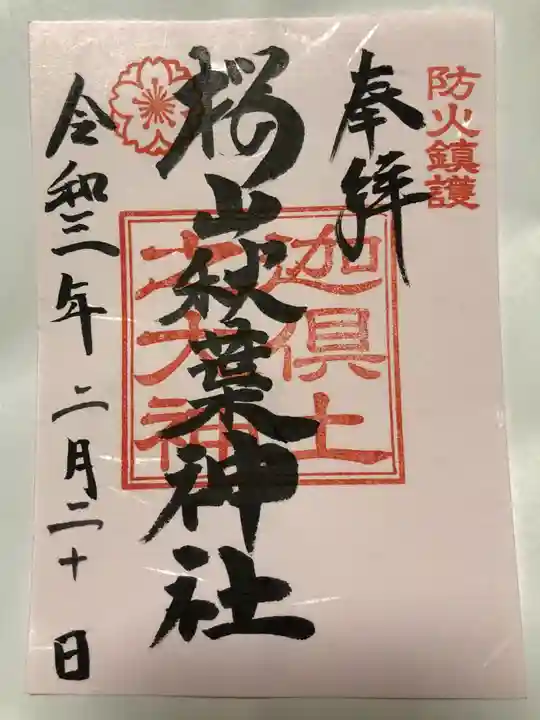 防火鎮護
奉拝
桜山秋葉神社
迦倶土
之大神
令和三年 二月二十日